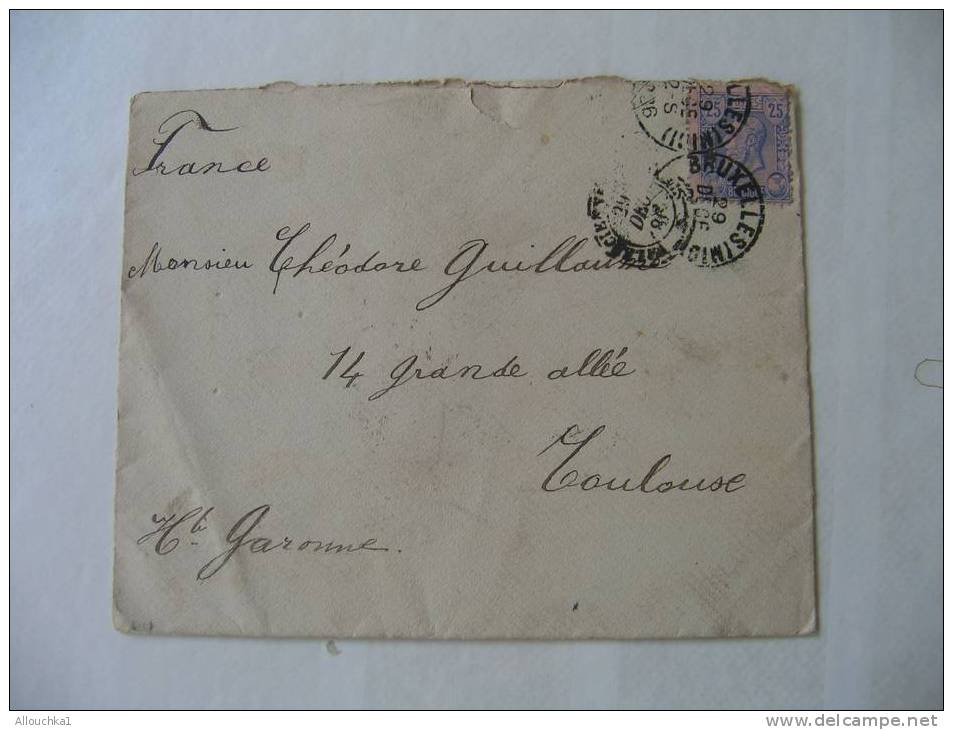 France
Monsieu Théodore Guillaume
14 grande allée
Toulouse
Hte Garonne.
25 25
BRUXELLES (MIDI)
29
DECE
2-S
29
DECE
Allouchka1
www.delcampe.net